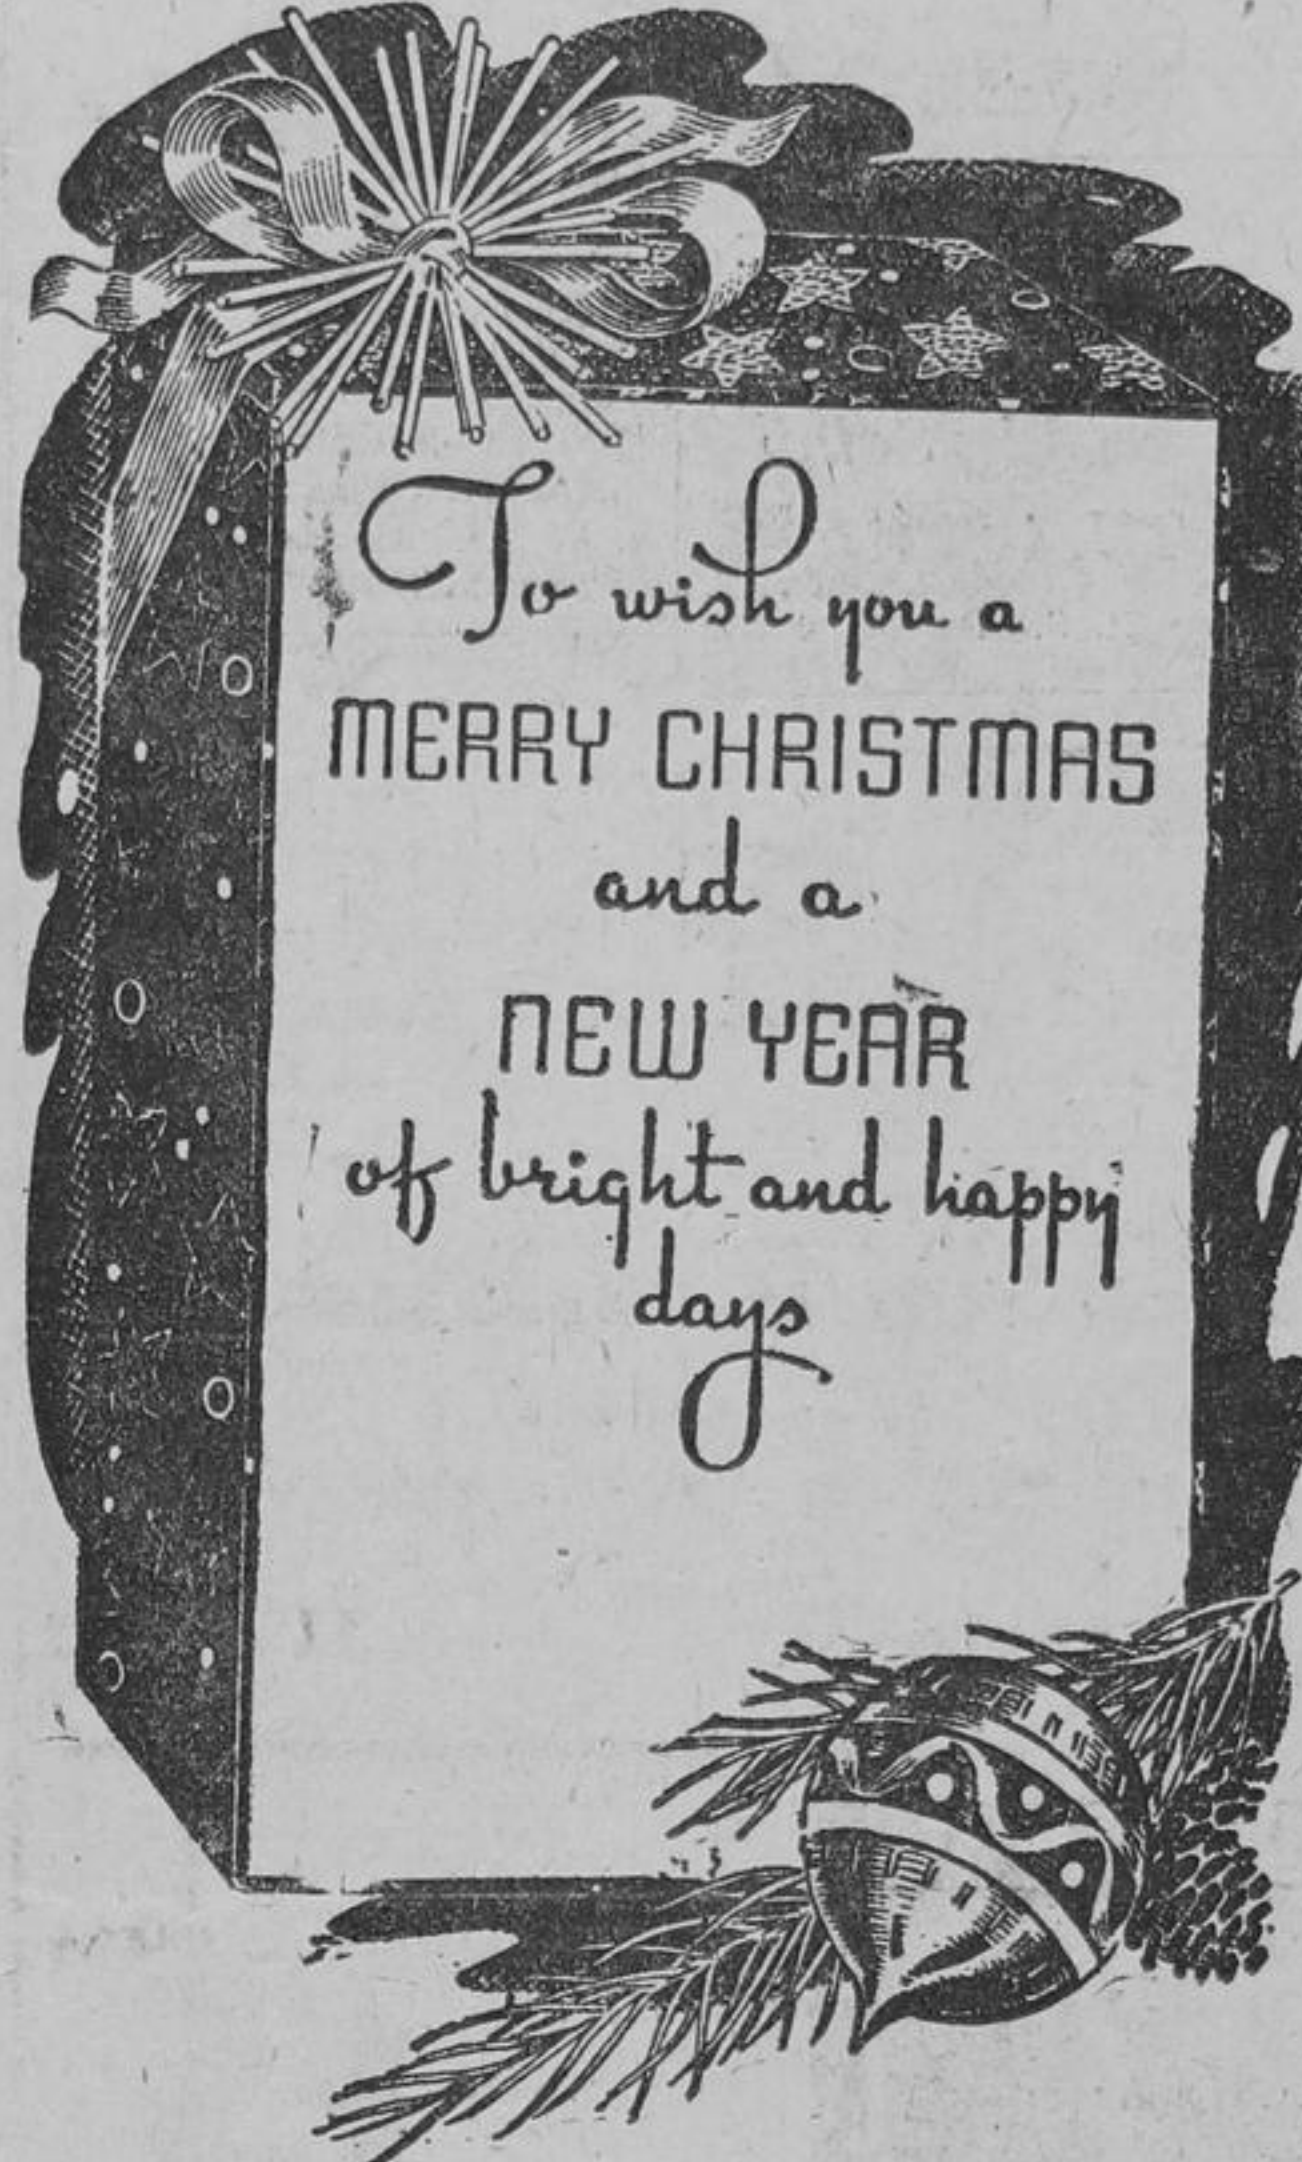 To wish you a
MERRY CHRISTMAS
and a
NEW YEAR
of bright and happy
days